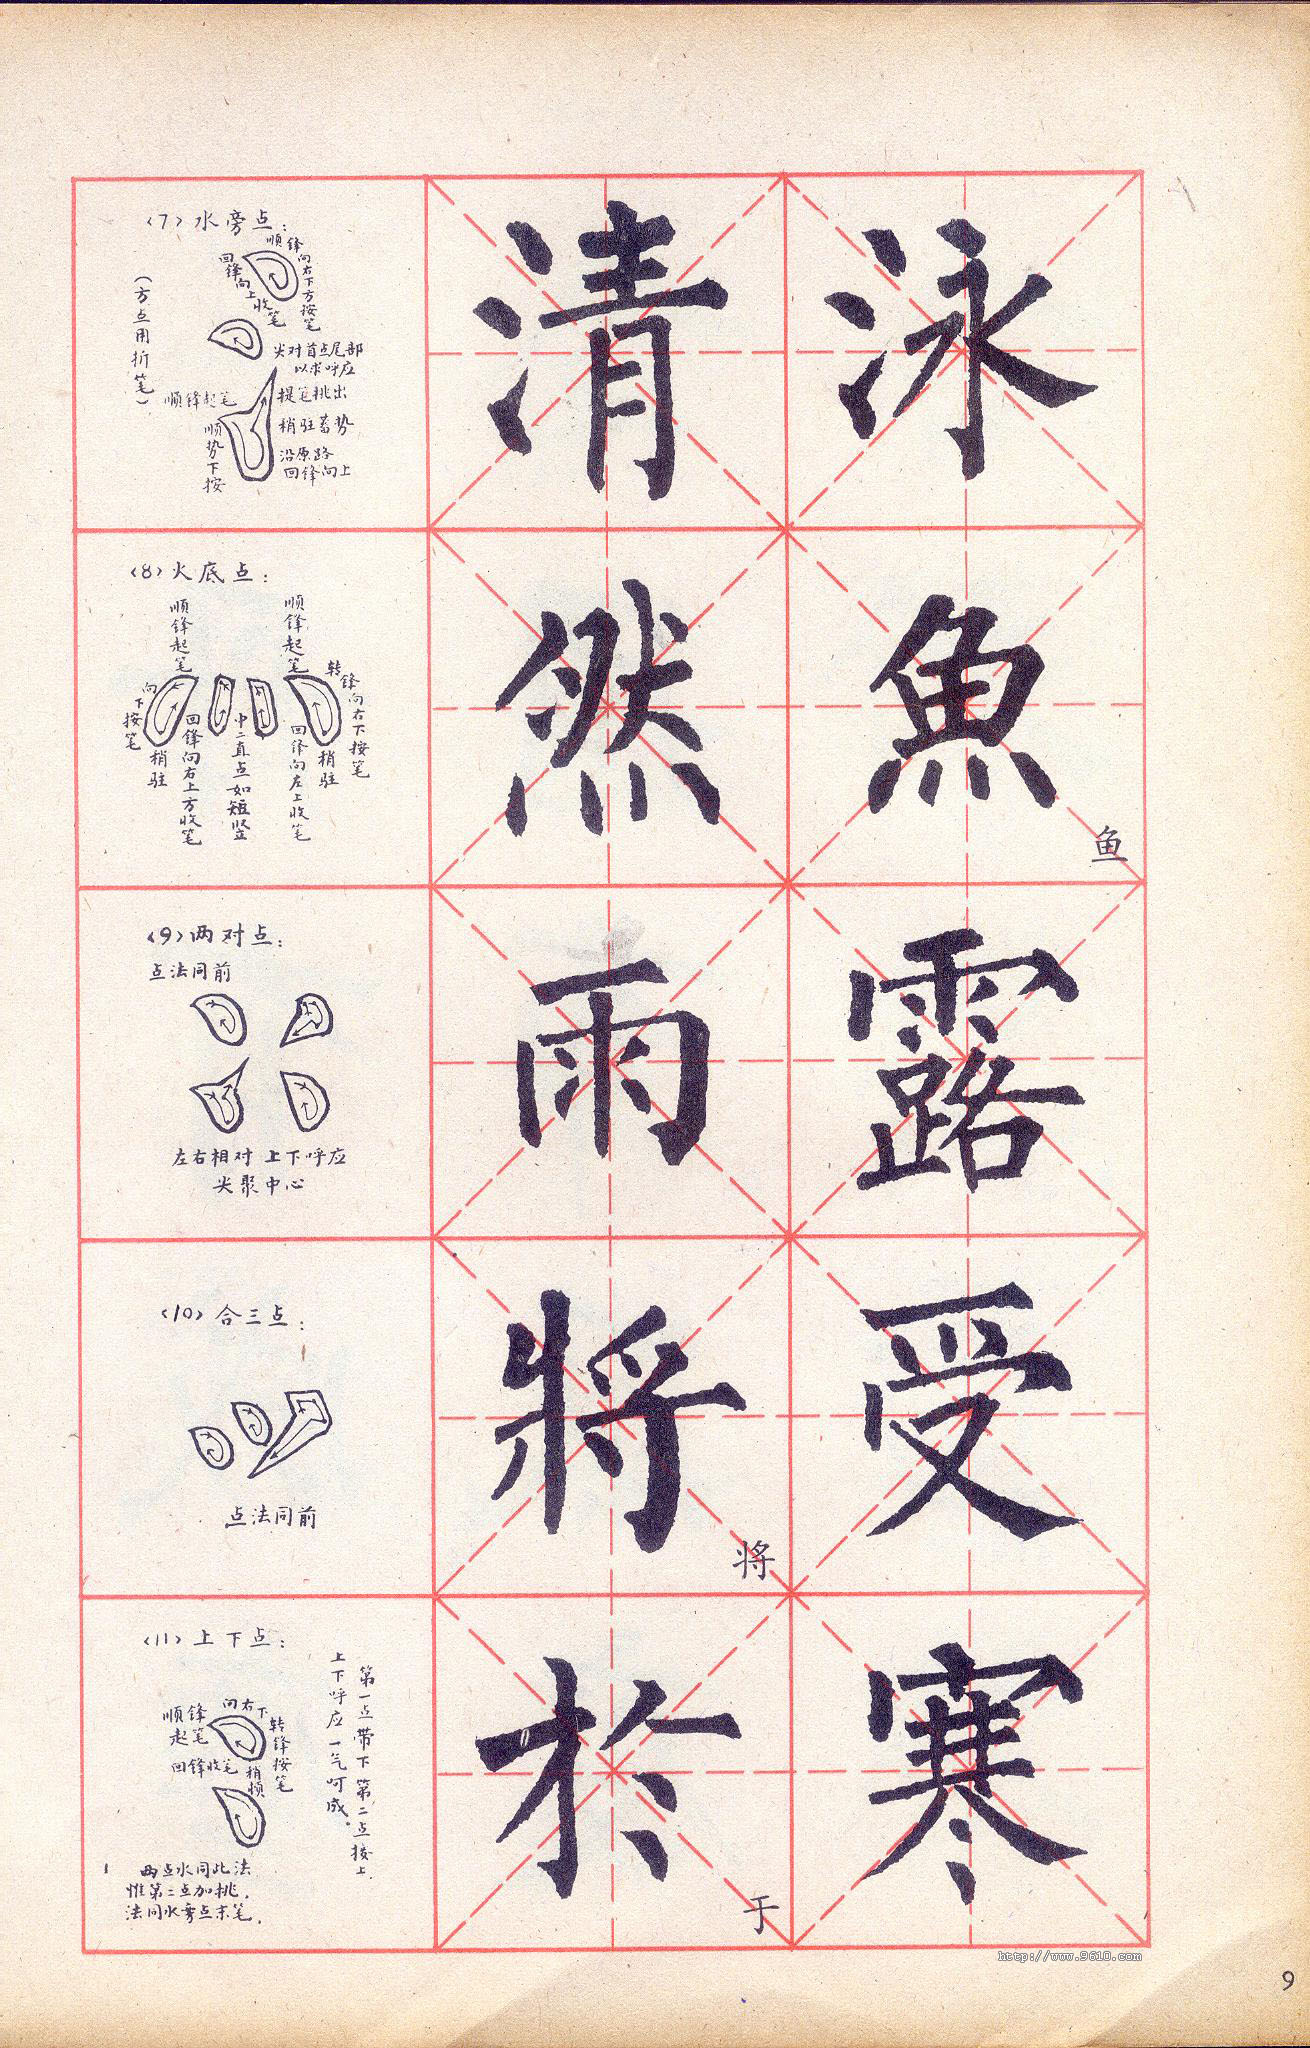 (7)水旁点:
顺锋向右下方按笔
回锋向上收笔
(方点用折笔)
尖对首点尾部
以求呼应
提笔挑出
顺锋起笔
稍驻蓄势
顺势下按
沿原路
回锋向上
清
泳
(8)火底点:
顺锋起笔
向下按笔
稍驻
回锋向右上方收笔
中二直点如短竖
顺锋起笔
转锋向右下按笔
稍驻
回锋向左上收笔
然
魚
鱼
(9)两对点:
点法同前
左右相对 上下呼应
尖聚中心
雨
露
(10)合三点:
点法同前
將
将
受
(11)上下点:
顺锋起笔
向右下
转锋按笔
稍顿
回锋收笔
第一点带下第二点接上.
上下呼应一气呵成。
两点水同此法
惟第二点加挑.
法同水旁点末笔.
於
于
寒
http://www.9610.com
9